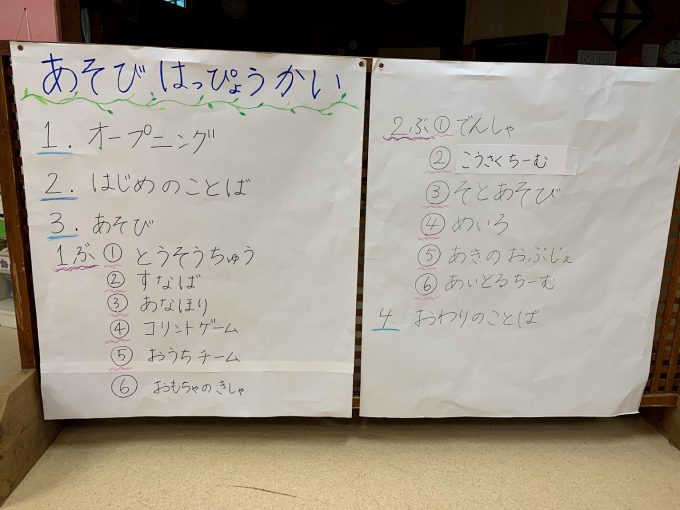 あそびはっぴょうかい
1. オープニング
2. はじめのことば
3. あそび
1ぶ ① とうそうちゅう
② すなば
③ あなほり
④ コリントゲーム
⑤ おうちチーム
⑥ おもちゃのきしゃ
2ぶ ① でんしゃ
② こうさくちーむ
③ そとあそび
④ めいろ
⑤ あきのおぶじぇ
⑥ あいどるちーむ
4. おわりのことば